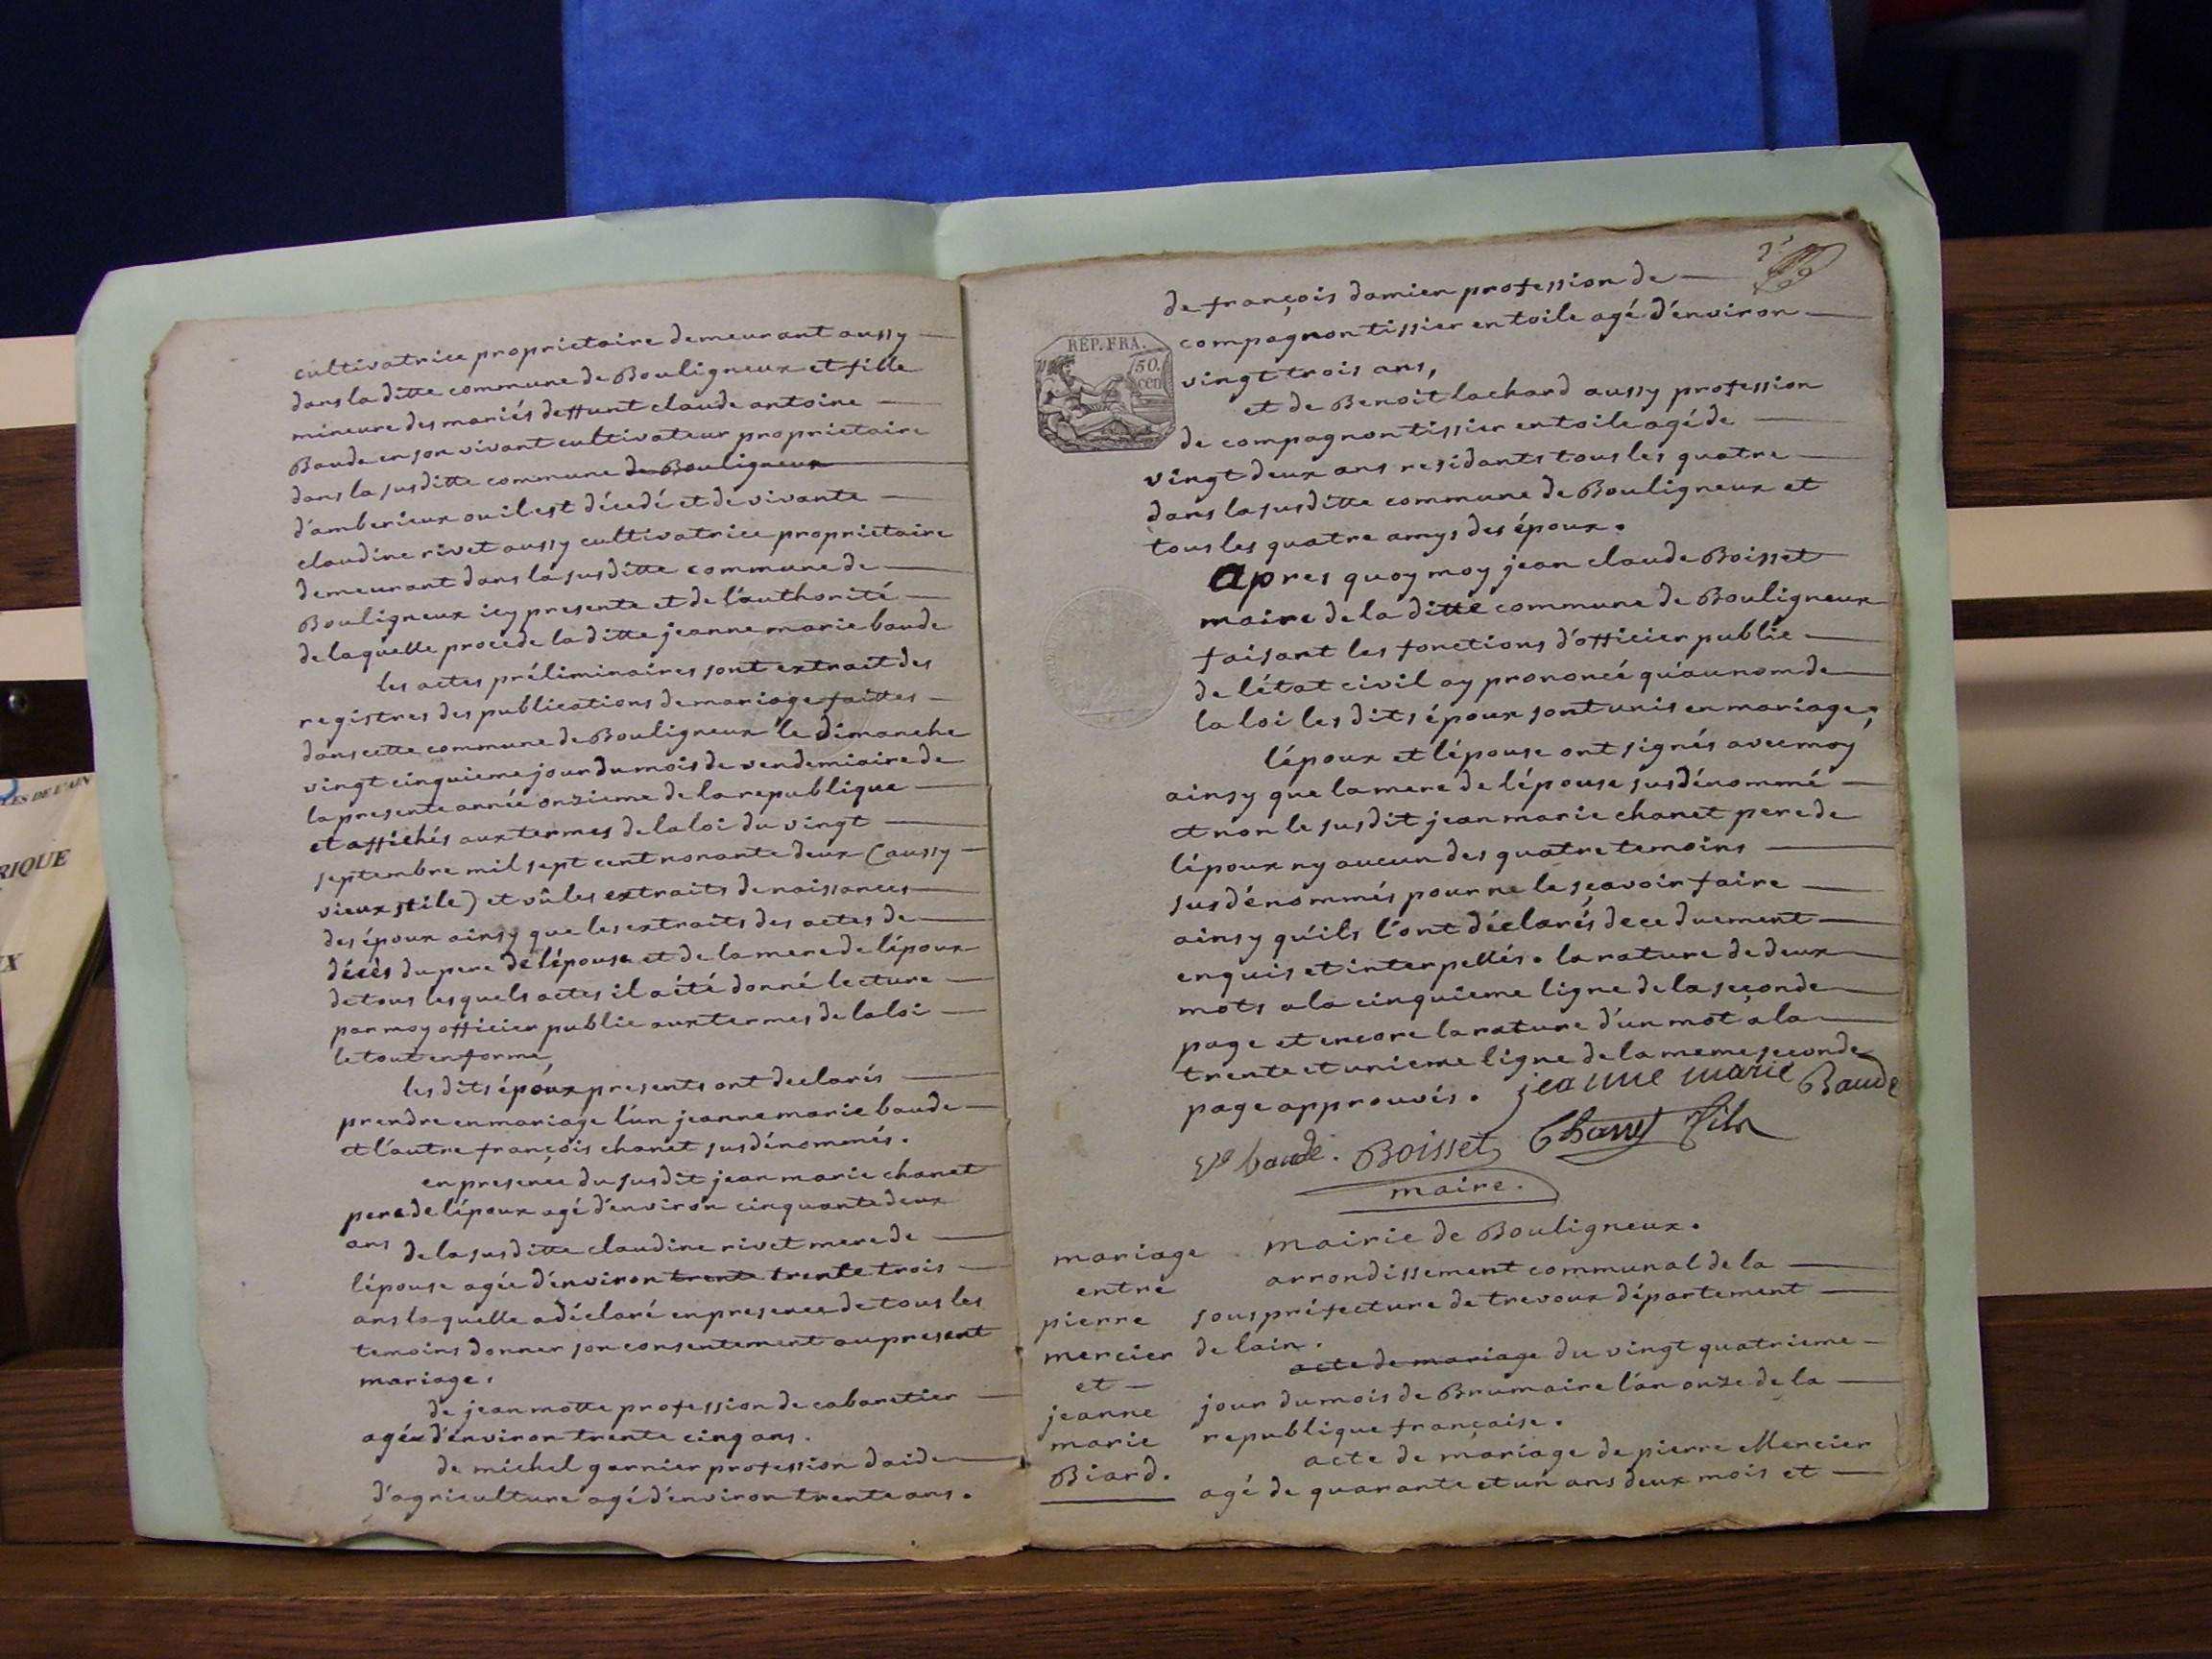 cultivatrice proprietaire demeurant aussy
dans la ditte commune de Bouligneux et fille
mineure des mariés deffunt claude antoine
Baude en son vivant cultivateur proprietaire
dans la susditte commune de Bouligneux
d'amberieux ou il est décedé et de vivante
claudine rivet aussy cultivatrice proprietaire
demeurant dans la susditte commune de
Bouligneux icy presente et de l'authorité
de laquelle procede la ditte jeanne marie baude
les actes préliminaires sont extrait des
registres des publications de mariage faittes
dans cette commune de Bouligneux le dimanche
vingt cinquieme jour du mois de vendemiaire de
la presente année onzieme de la republique
et affichés aux termes de la loi du vingt
septembre mil sept cent nonante deux (aussy
vieux stile) et vû les extraits de naissances
des époux ainsy que les extraits des actes de
décès du pere de l'épouse et de la mere de l'époux
de tous lesquels actes il a été donné lecture
par moy officier public aux termes de la loi
le tout en forme,
les dits époux presents ont declarés
prendre en mariage l'un jeanne marie baude
et l'autre françois chanet susdénommés.
en presence du susdit jean marie chanet
pere de l'époux agé d'environ cinquante deux
ans de la susditte claudine rivet mere de
l'épouse agée d'environ trente trente trois
ans laquelle a déclaré en presence de tous les
temoins donner son consentement au present
mariage,
de jean motte profession de cabaretier
agé d'environ trente cinq ans.
de michel garnier profession d'aide
d'agriculture agé d'environ trente ans.
de françois damien profession de
compagnon tissier en toile agé d'environ
REP. FRA.
50.
cen
vingt trois ans,
et de Benoit lachard aussy profession
de compagnon tissier en toile agé de
vingt deux ans residants tous les quatre
dans la susditte commune de Bouligneux et
tous les quatre amys des époux.
apres quoy moy jean claude Boisset
maire de la ditte commune de Bouligneux
faisant les fonctions d'officier public
de l'état civil ay prononcé qu'au nom de
la loi les dits époux sont unis en mariage,
l'époux et l'épouse ont signés avec moy
ainsy que la mere de l'épouse susdénommé
et non le susdit jean marie chanet pere de
l'époux ny aucun des quatre temoins
susdénommés pour ne le sçavoir faire
ainsy qu'ils l'ont déclarés de ce duement
enquis et interpellés. la rature de deux
mots a la cinquieme ligne de la seconde
page et encore la rature d'un mot a la
trente et unieme ligne de la meme seconde
page approuvés. jeanne marie Baude
Ve baude. Boisset Chanet fils
maire.
mairie de Bouligneux.
arrondissement communal de la
souspréfecture de trevoux département
de lain.
mariage
entre
pierre
mercier
et
jeanne
marie
Biard.
acte de mariage du vingt quatrieme
jour du mois de Brumaire l'an onze de la
republique française.
acte de mariage de pierre Mercier
agé de quarante et un ans deux mois et
LES DE L'AIN
RIQUE
X